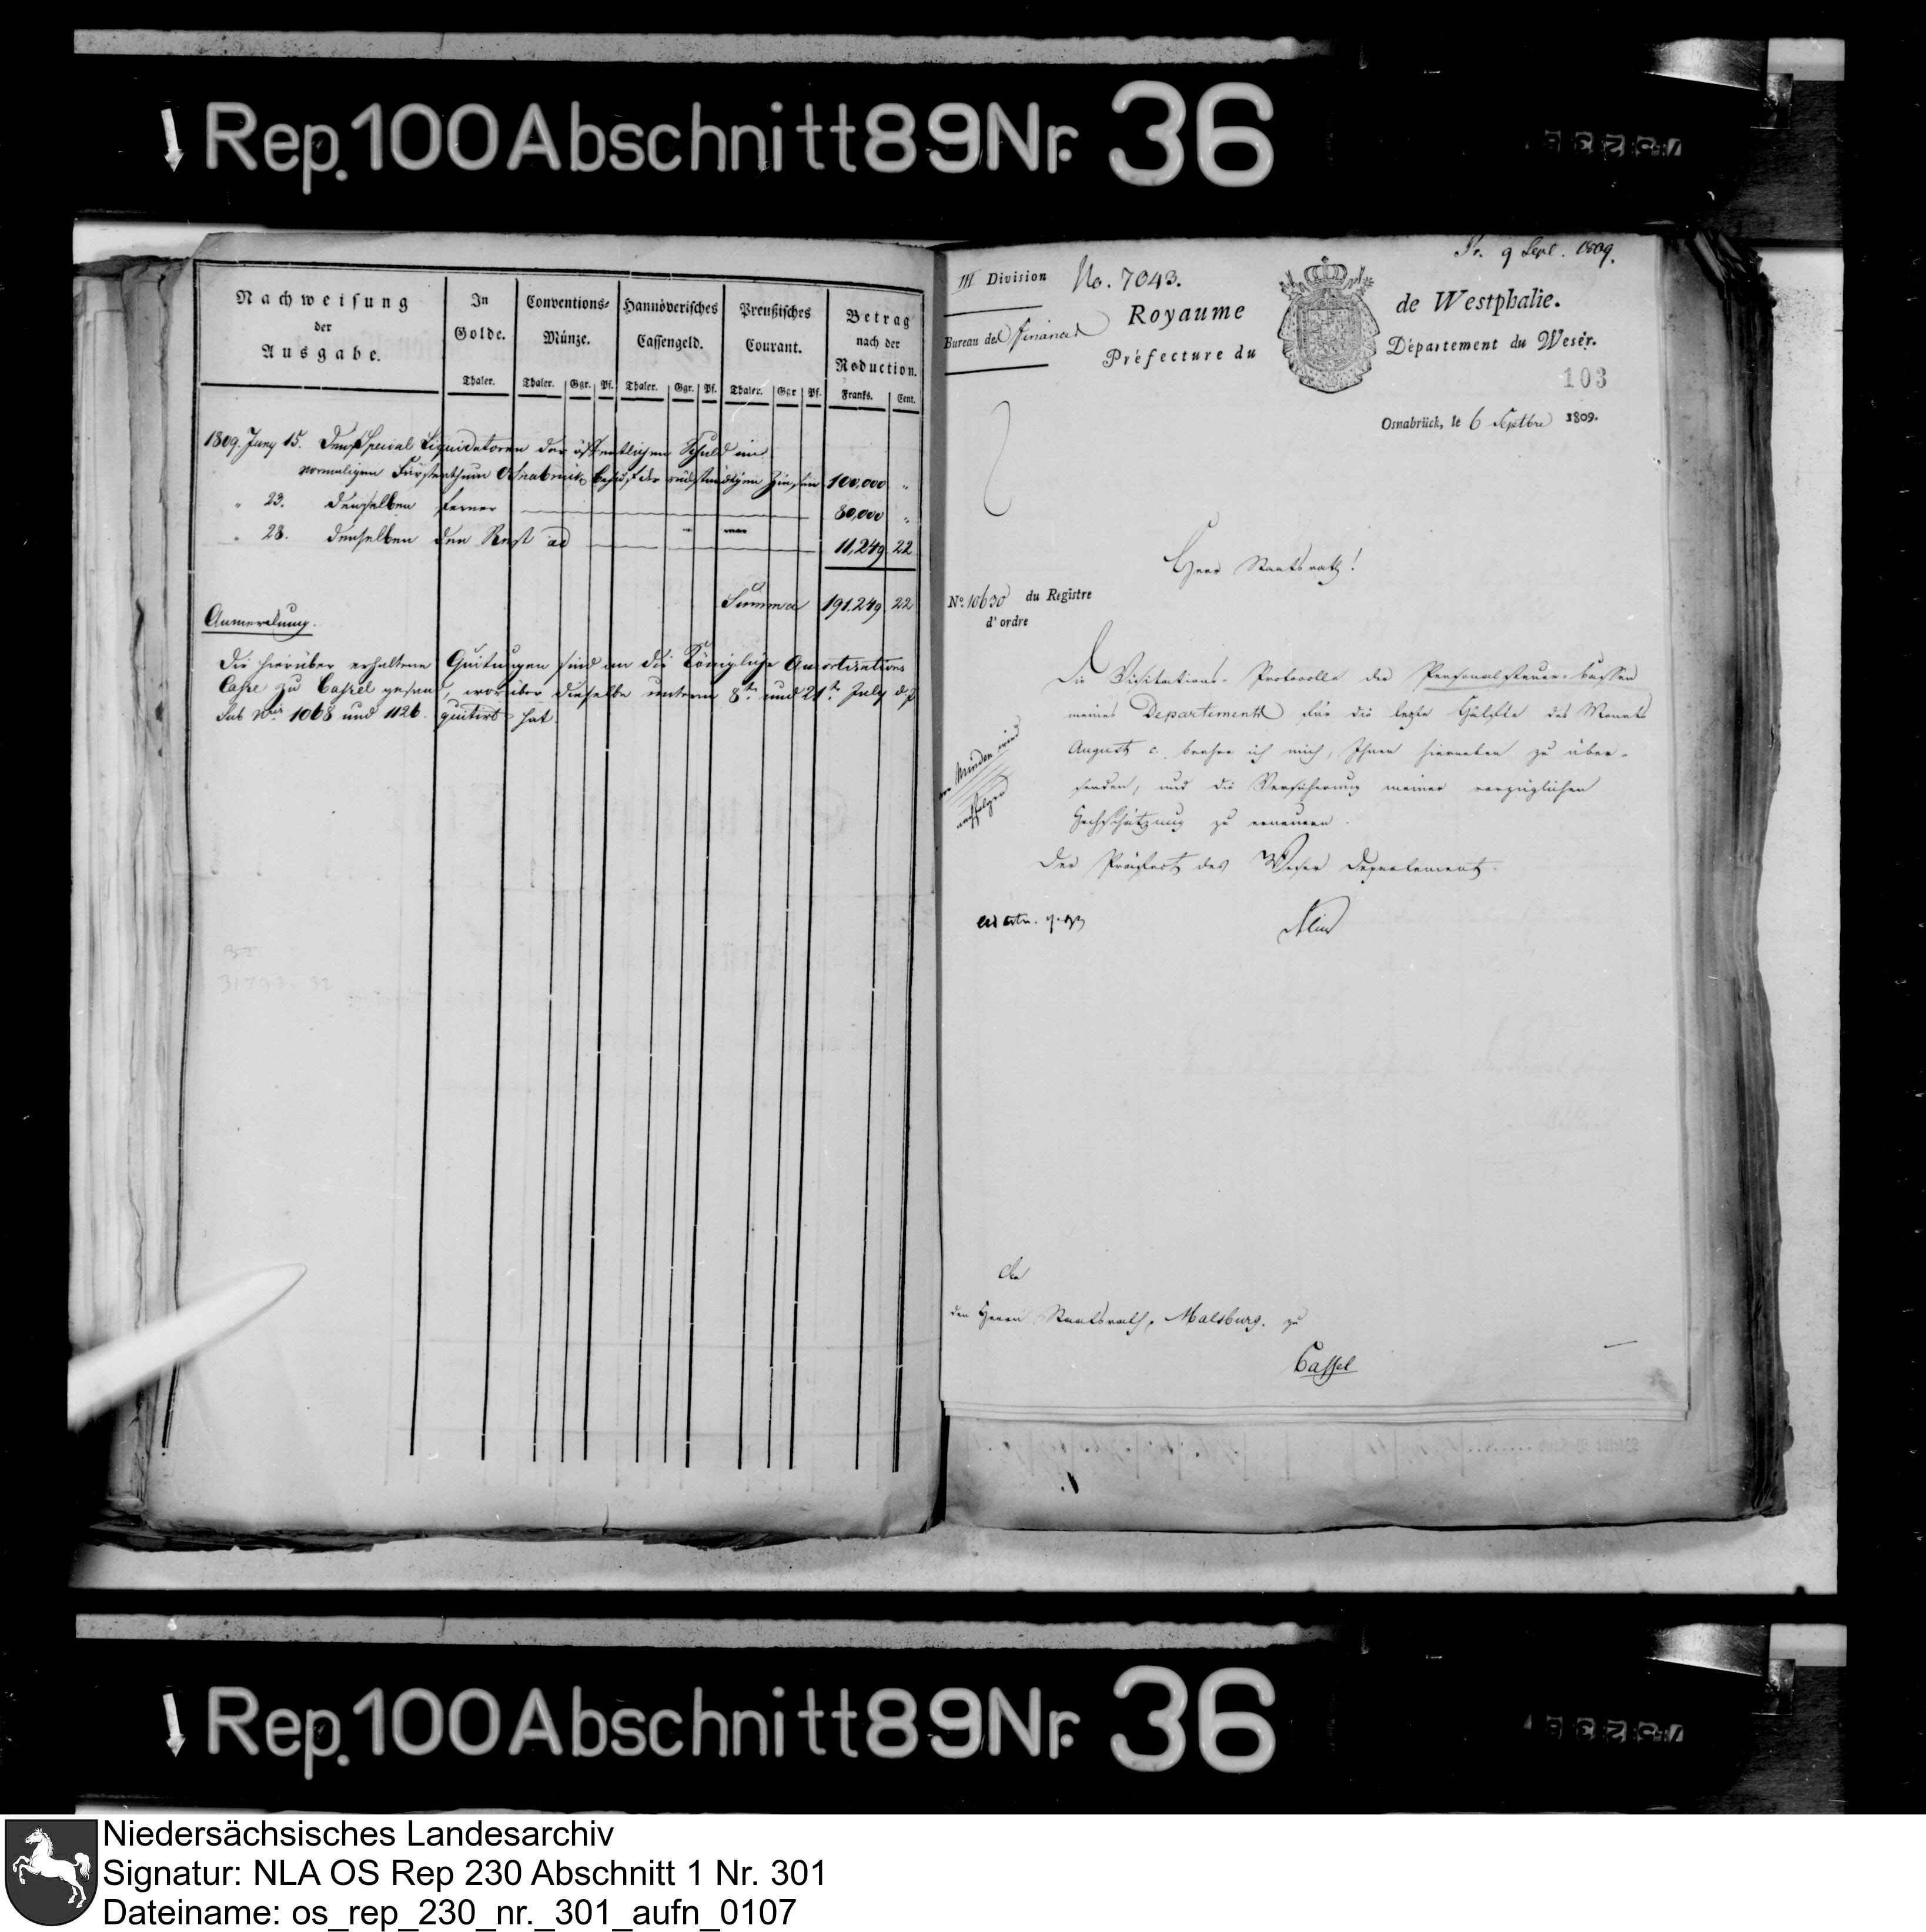 Rep. 100 Abschnitt 89 Nr. 36
Nachweisung
der
Ausgabe.
In
Golde.
Thaler.
Conventions-
Münze.
Thaler. Ggr. Pf.
Hannöverisches
Cassengeld.
Thaler. Ggr. Pf.
Preußisches
Courant.
Thaler. Ggr Pf.
Betrag
nach der
Reduction.
Franks. Cent.
1809. Juny 15. Dem Special Liquidatoren der öffentlichen Schuld im
vormaligen Fürstenthum Osnabrück behuf der rückständigen Zinsen 100,000 "
" 23. demselben ferner 80,000 "
" 28. demselben den Rest ad 11,249 22
Summa 191,249 22
Anmerkung.
Die hierüber erhaltene Quitungen sind an die Königliche Amortisations
Casse zu Cassel gesand, worüber dieselbe unterm 8ten und 21ten July d. J.
sub Nris 1068 und 1126. quitirt hat.
Pr. 9 Sept. 1809.
III Division No. 7043.
Bureau des Finances
Royaume de Westphalie.
Préfecture du Département du Weser.
103
Osnabrück, le 6 Septbre 1809.
Herr Staatsrath!
No. 10630 du Registre
d'ordre
Die Visitations-Protocolle der Personalsteuer-Cassen
meines Departements für die lezte Hälfte des Monats
August c. beehre ich mich, Ihnen hierneben zu über-
senden, und die Versicherung meiner vorzüglichen
Hochschätzung zu erneuern.
Minden
nachfolgen
Der Präfect des Weser Departements.
An
den Herrn Staatsrath, Malsburg. zu
Cassel
Rep. 100 Abschnitt 89 Nr. 36
Niedersächsisches Landesarchiv
Signatur: NLA OS Rep 230 Abschnitt 1 Nr. 301
Dateiname: os_rep_230_nr._301_aufn_0107